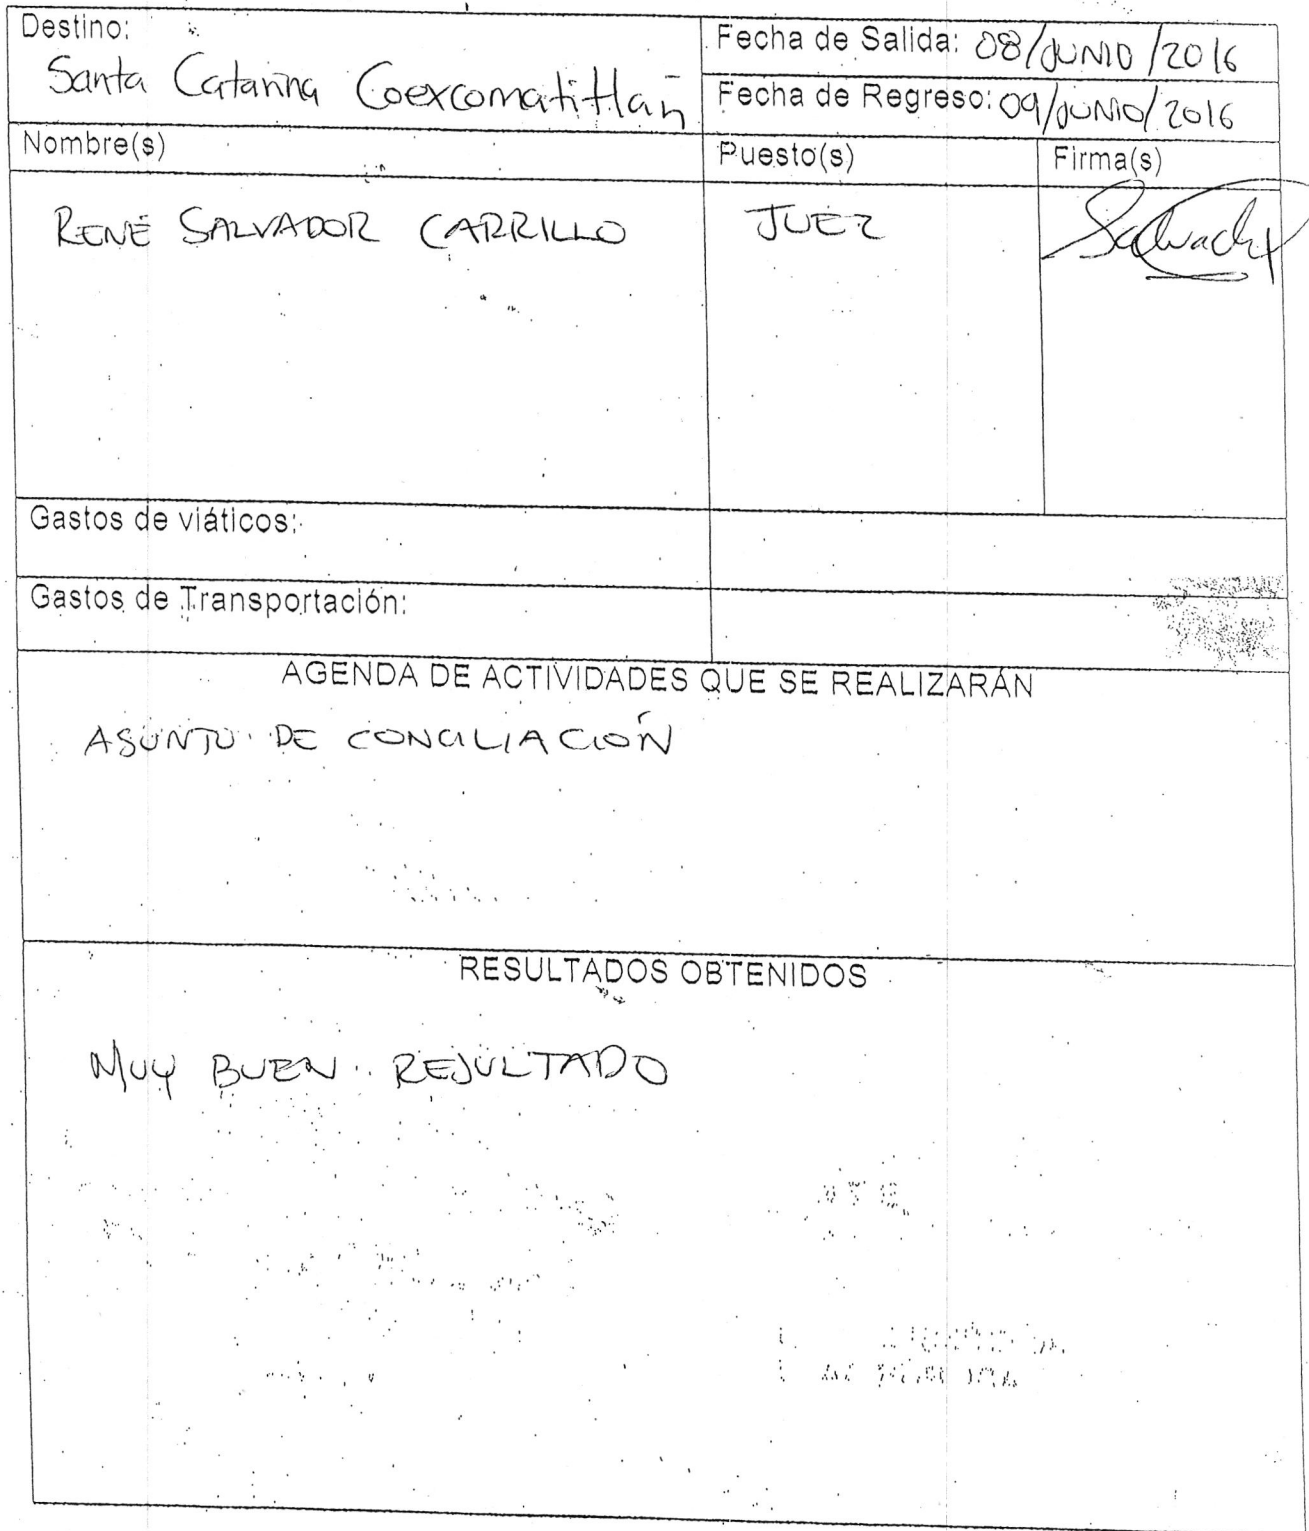 Destino:
Santa Catarina Coexcomatitlán
Fecha de Salida: 08/JUNIO/2016
Fecha de Regreso: 09/JUNIO/2016
Nombre(s) Puesto(s) Firma(s)
RENÉ SALVADOR CARRILLO JUEZ Salvador
Gastos de viáticos:
Gastos de Transportación:
AGENDA DE ACTIVIDADES QUE SE REALIZARÁN
ASUNTO DE CONCILIACIÓN
RESULTADOS OBTENIDOS
MUY BUEN RESULTADO